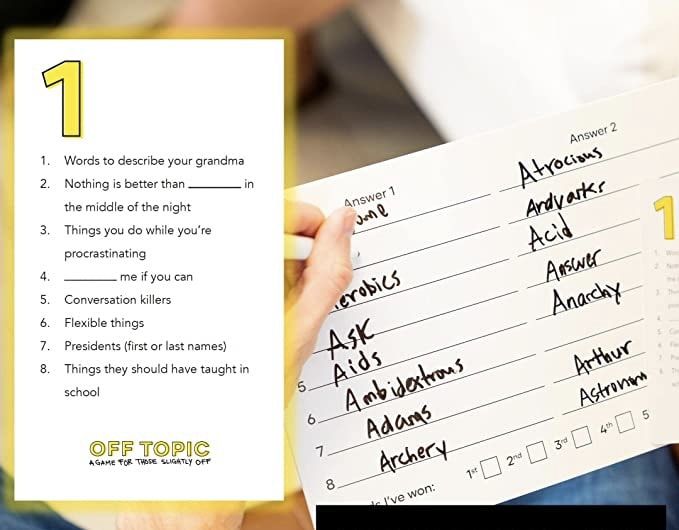 1
1. Words to describe your grandma
2. Nothing is better than ________ in
the middle of the night
3. Things you do while you're
procrastinating
4. ________ me if you can
5. Conversation killers
6. Flexible things
7. Presidents (first or last names)
8. Things they should have taught in
school
OFF TOPIC
A GAME FOR THOSE SLIGHTLY OFF
Answer 1
Answer 2
Atrocious
Ardvarks
Acid
Answer
Ask
Anarchy
5. Aids
6. Ambidextrous
Arthur
7. Adams
Astronom
8. Archery
I've won:
1st
2nd
3rd
4th
5
1